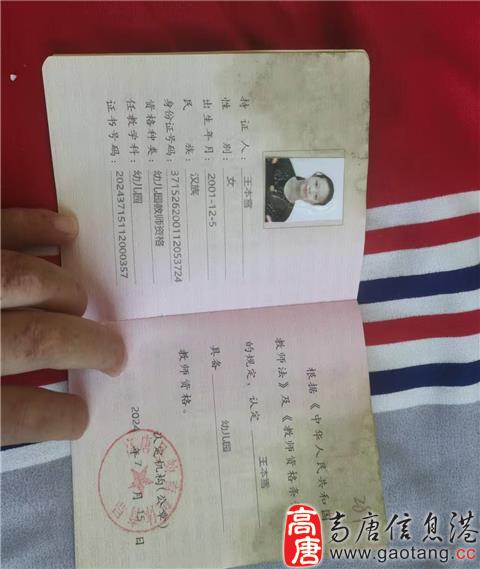 持 证 人：王本雪
性 别：女
出生年月：2001-12-5
民 族：汉族
身份证号码：371526200112053724
资格种类：幼儿园教师资格
任教学科：幼儿园
证书号码：20243715112000357
根据《中华人民共和国
教师法》及《教师资格条
的规定，认定 王本雪
具备 幼儿园
教师资格。
认定机构(公章)
2024 年 7 月 15 日
高唐
高唐信息港
www.gaotang.cc